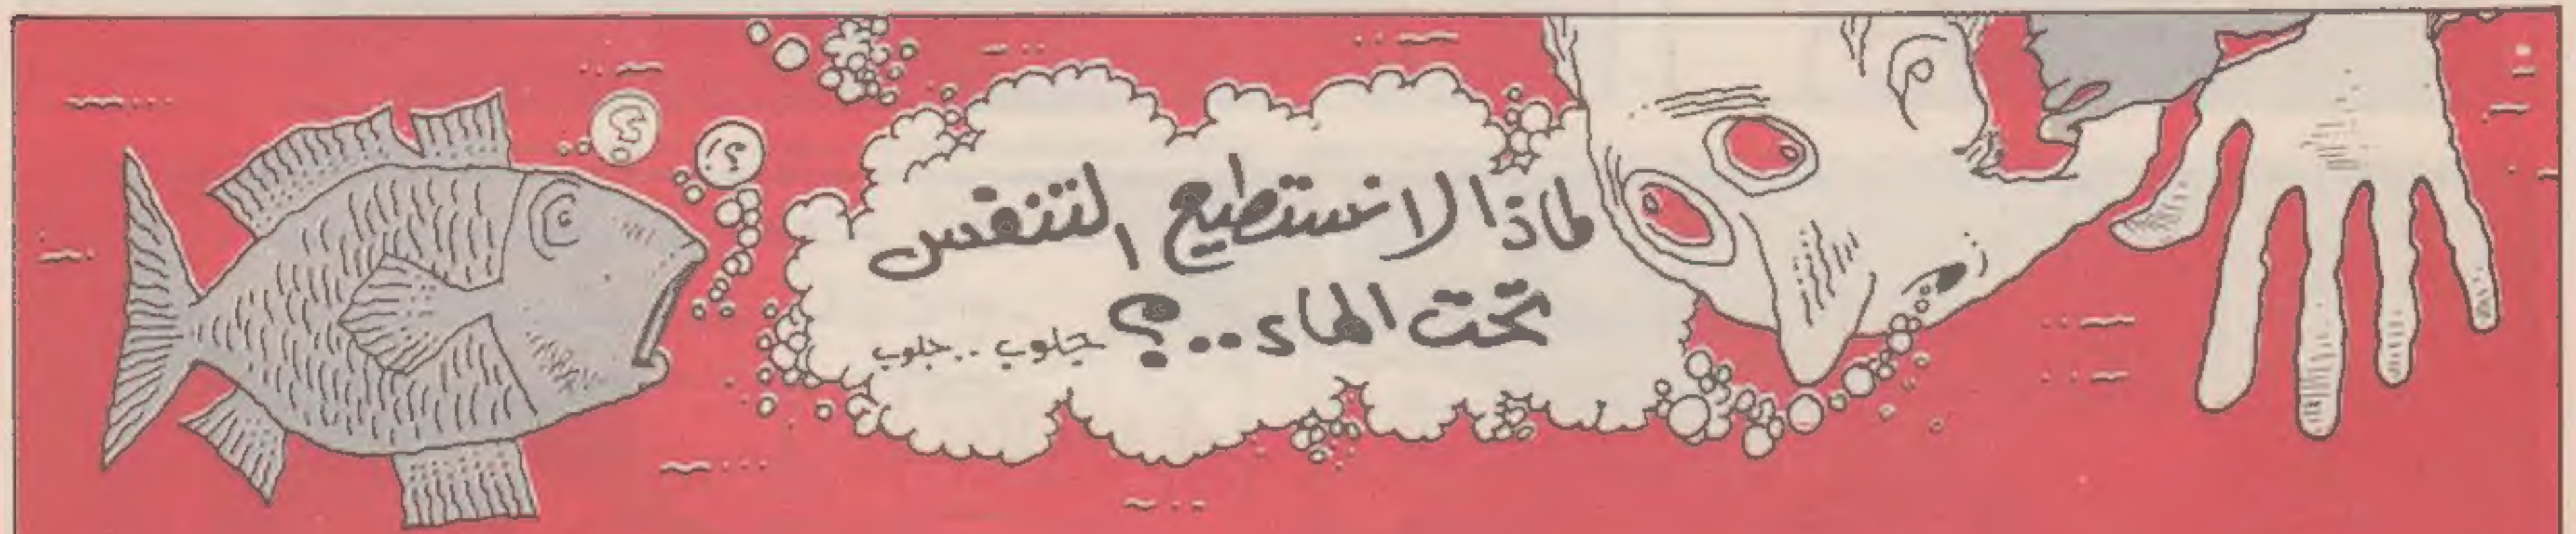 لماذا لا نستطيع التنفس
تحت الماء..؟ جلوب.. جلوب
؟
؟